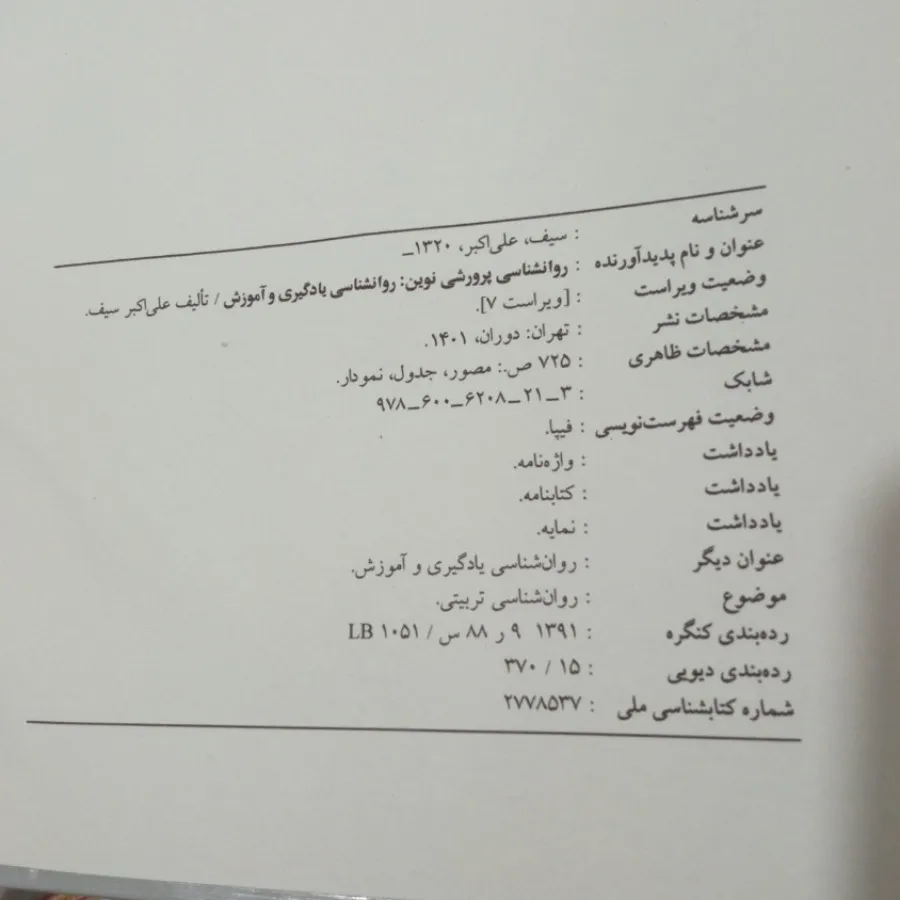 سرشناسه : سیف، علی‌اکبر، ۱۳۲۰ـ
عنوان و نام پدیدآورنده : روانشناسی پرورشی نوین: روانشناسی یادگیری و آموزش / تألیف علی‌اکبر سیف.
وضعیت ویراست : [ویراست ۷].
مشخصات نشر : تهران: دوران، ۱۴۰۱.
مشخصات ظاهری : ۷۲۵ ص.: مصور، جدول، نمودار.
شابک : ۳ـ۲۱ـ۶۲۰۸ـ۶۰۰ـ۹۷۸
وضعیت فهرست‌نویسی : فیپا.
یادداشت : واژه‌نامه.
یادداشت : کتابنامه.
یادداشت : نمایه.
عنوان دیگر : روان‌شناسی یادگیری و آموزش.
موضوع : روان‌شناسی تربیتی.
رده‌بندی کنگره : ۱۳۹۱ ۹ ر ۸۸ س / LB ۱۰۵۱
رده‌بندی دیویی : ۱۵ / ۳۷۰
شماره کتابشناسی ملی : ۲۷۷۸۵۳۷